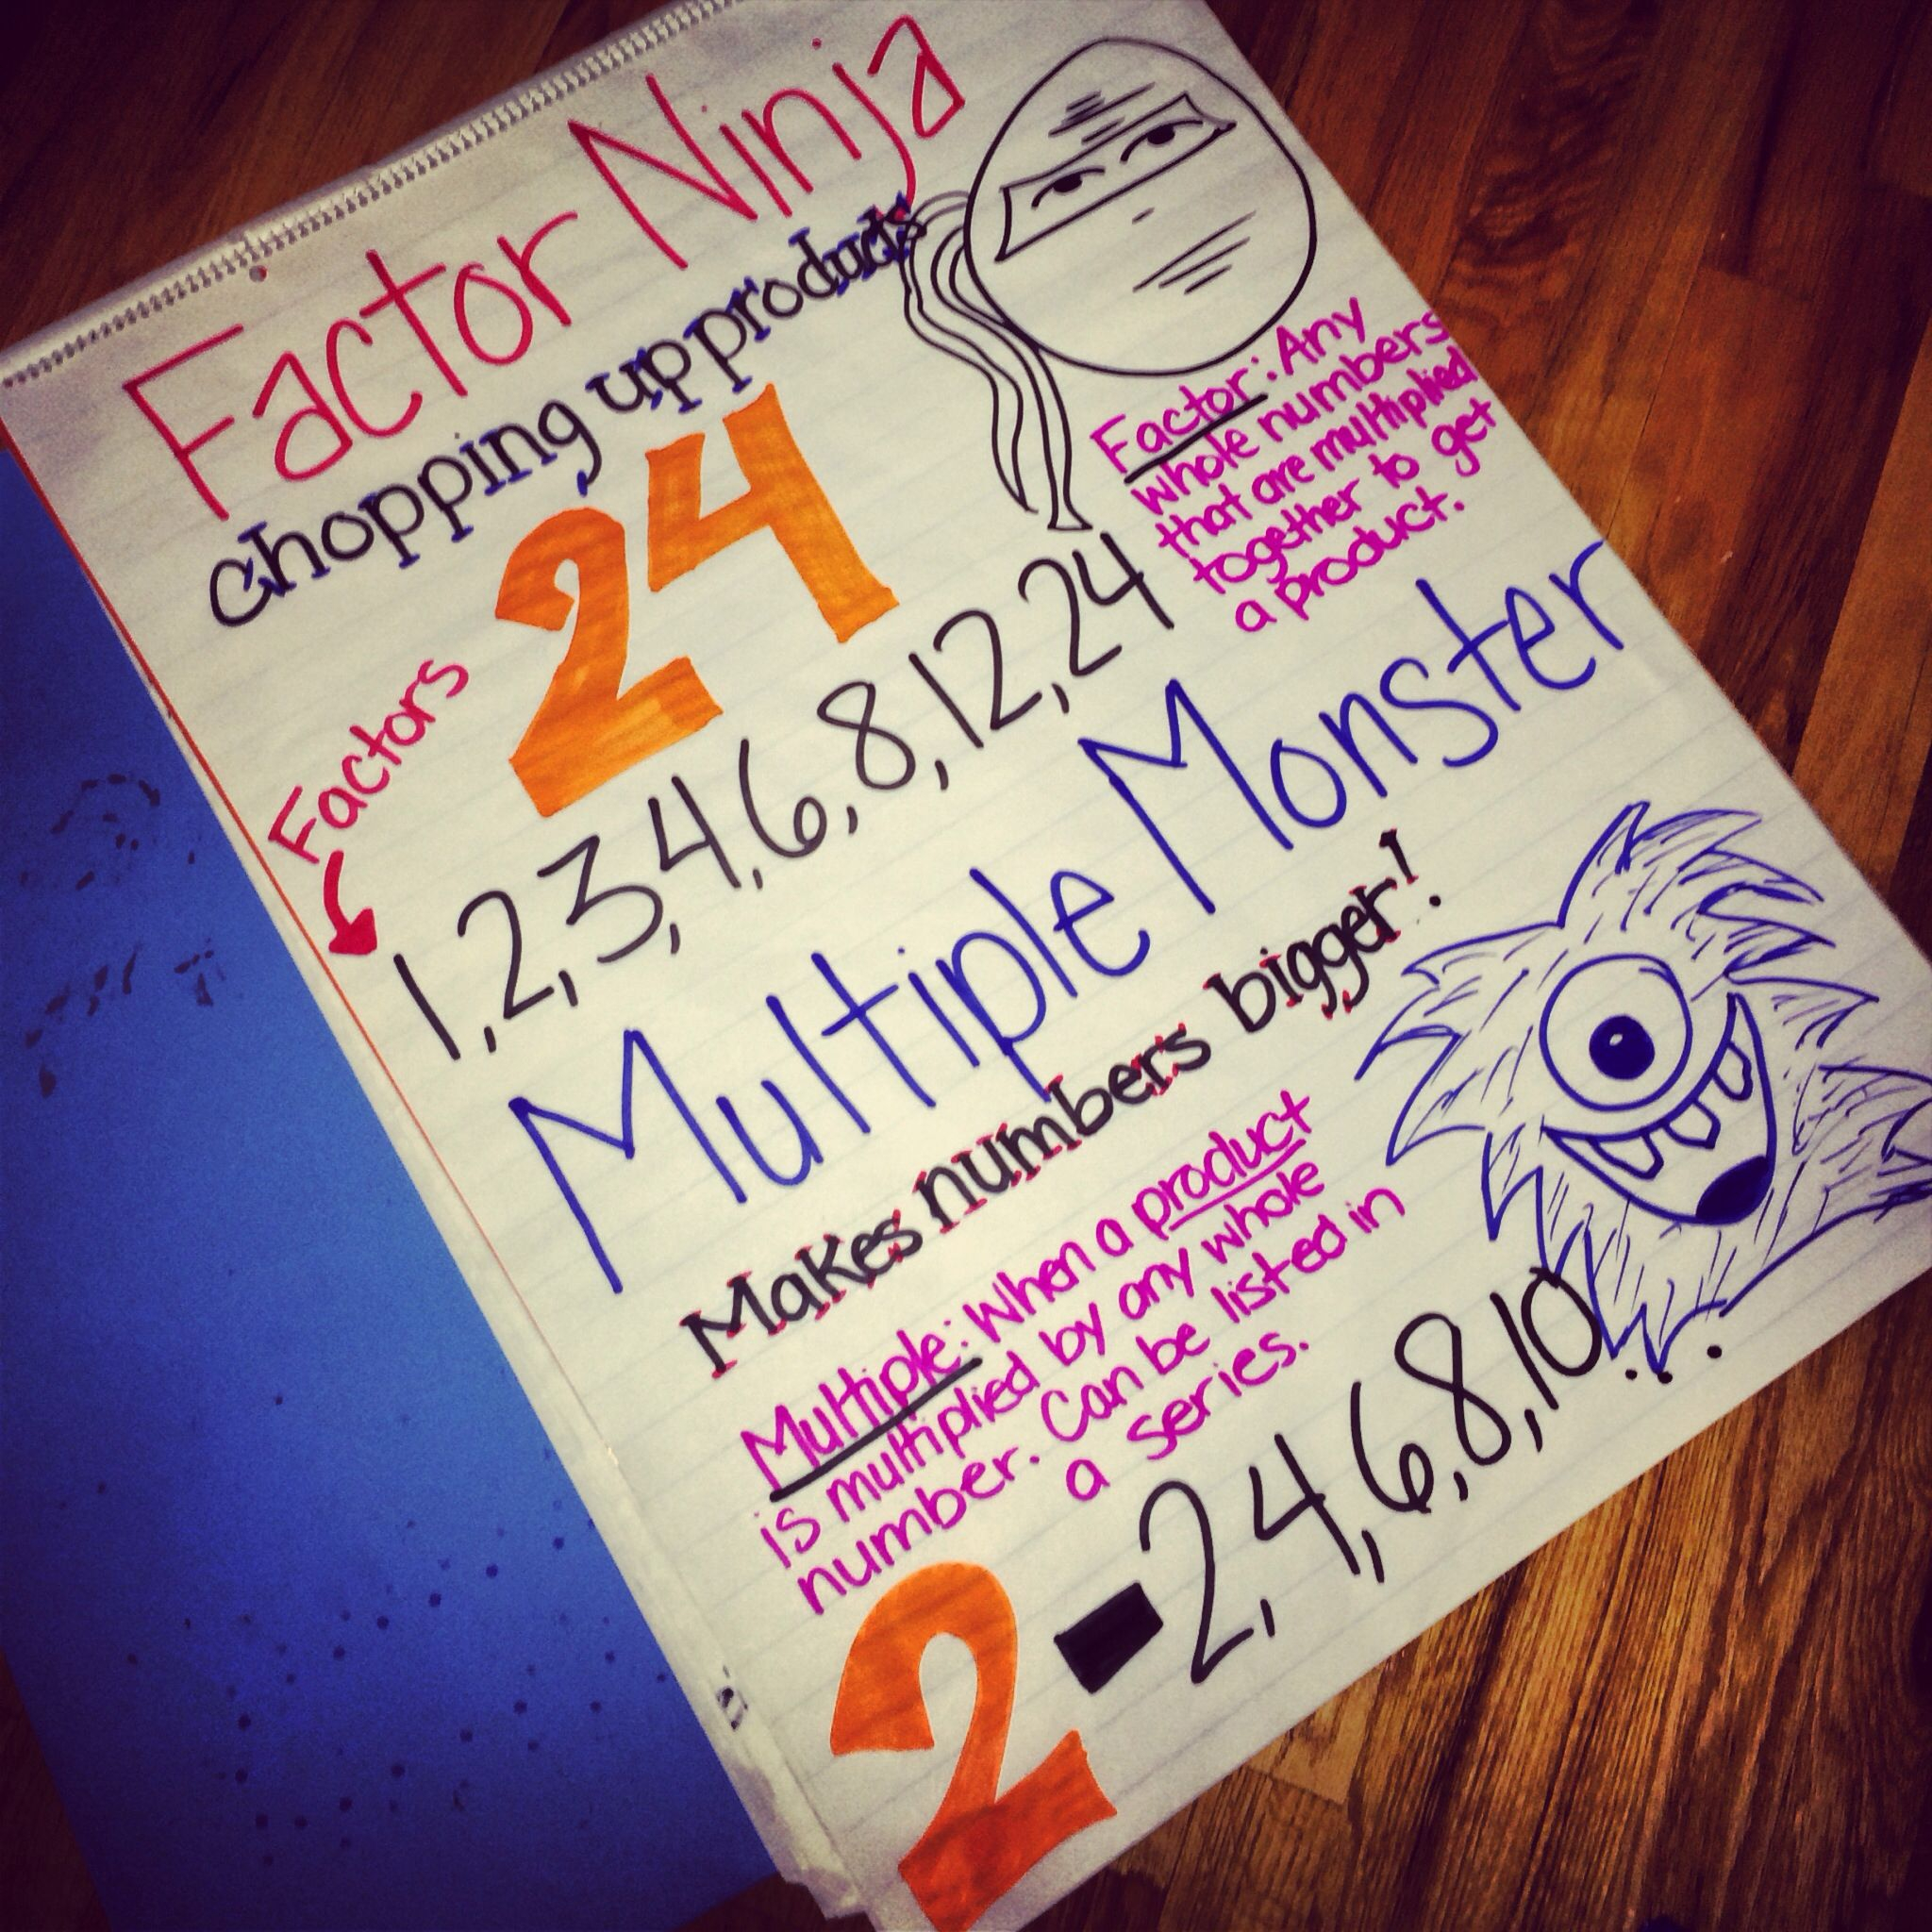 Factor Ninja
chopping up products
24
Factors
1,2,3,4,6,8,12,24
Factor: Any
whole numbers
that are multiplied
together to get
a product.
Multiple Monster
Makes numbers bigger!
Multiple: When a product
is multiplied by any whole
number. Can be listed in
a series.
2 - 2,4,6,8,10...